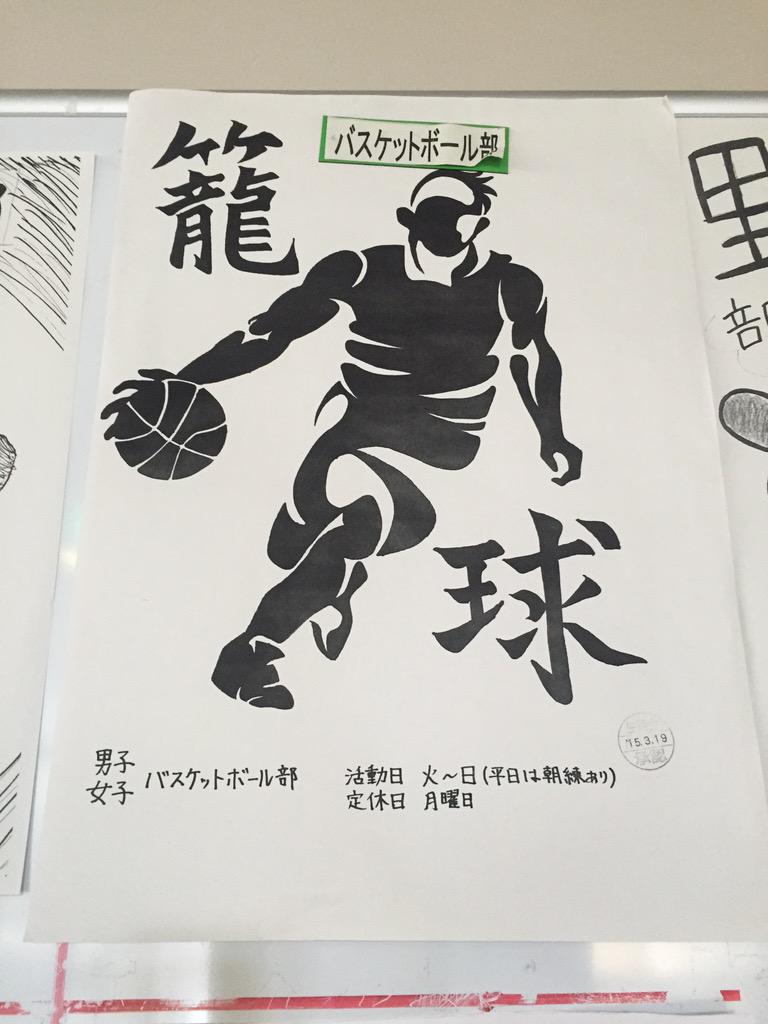 バスケットボール部
籠
球
男子
女子
バスケットボール部
活動日 火～日(平日は朝練あり)
定休日 月曜日
'15.3.19
承認
部